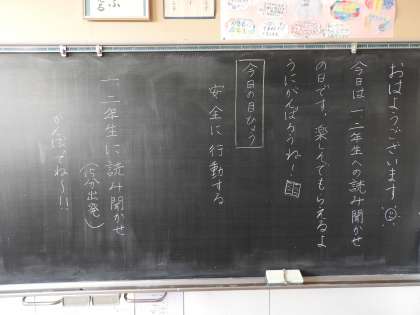 おはようございます
今日は一、二年生への読み聞かせ
の日です。楽しんでもらえるよ
うにがんばろうね!
今日の目ひょう
安全に行動する
一、二年生に読み聞かせ
がんばってね〜!!